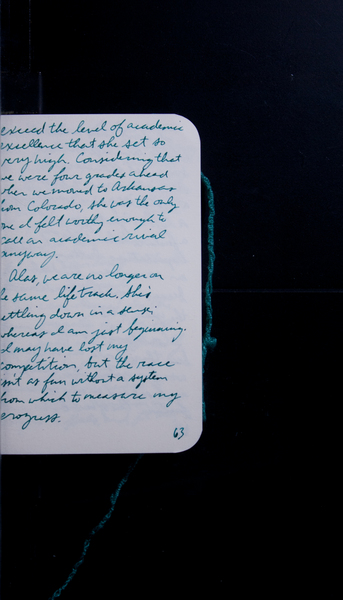 exceed the level of academic
excellence that she set so
very high. Considering that
we were four grades ahead
when we moved to Arkansas
from Colorado, she was the only
one I felt worthy enough to
call an academic rival
anyway.
Alas, we are no longer on
he same life track. She's
ettling down in a sense,
whereas I am just beginning.
I may have lost my
competition, but the race
isn't as fun without a system
from which to measure my
progress.
63